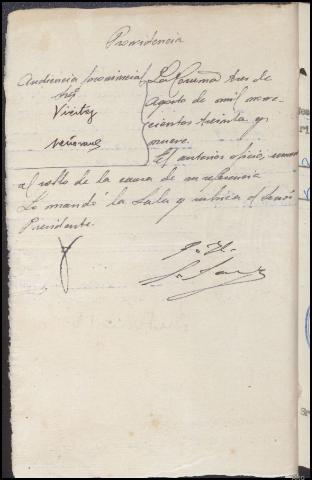 Providencia
Audiencia provincial
Vieitez
La Coruña tres de
Agosto de mil nove-
cientos treinta y
nueve.
El anterior oficio,
al rollo de la causa de su referencia
Lo mandó la Sala y rubrica el Señor
Presidente.